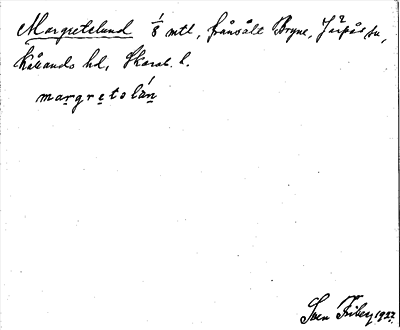 Margretelund 1/8 mtl, frånsålt Bryne, Järpås sn,
Kållands hd, Skarab. l.
margretolán
Sven Friberg 1927.